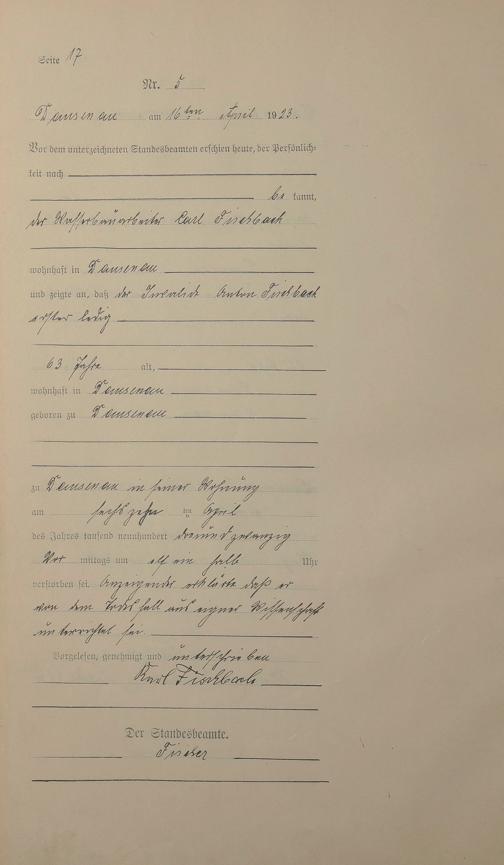 Seite 17
Nr. 5
Dausenau am 16ten April 1923.
Vor dem unterzeichneten Standesbeamten erschien heute, der Persönlich-
keit nach
be kannt,
der Wasserbauarbeiter Carl Fischbach
wohnhaft in Dausenau
und zeigte an, daß der Invalide Anton Fischbach
ledig
63 Jahre alt,
wohnhaft in Dausenau
geboren zu Dausenau
zu Dausenau in seiner Wohnung
am sechszehn ten April
des Jahres tausend neunhundert dreiundzwanzig
Vor mittags um elf ein halb Uhr
verstorben sei. Anzeigender erklärte daß er
von dem Todesfall aus eigner Wissenschaft
unterrichtet sei.
Vorgelesen, genehmigt und unterschrieben
Karl Fischbach
Der Standesbeamte.